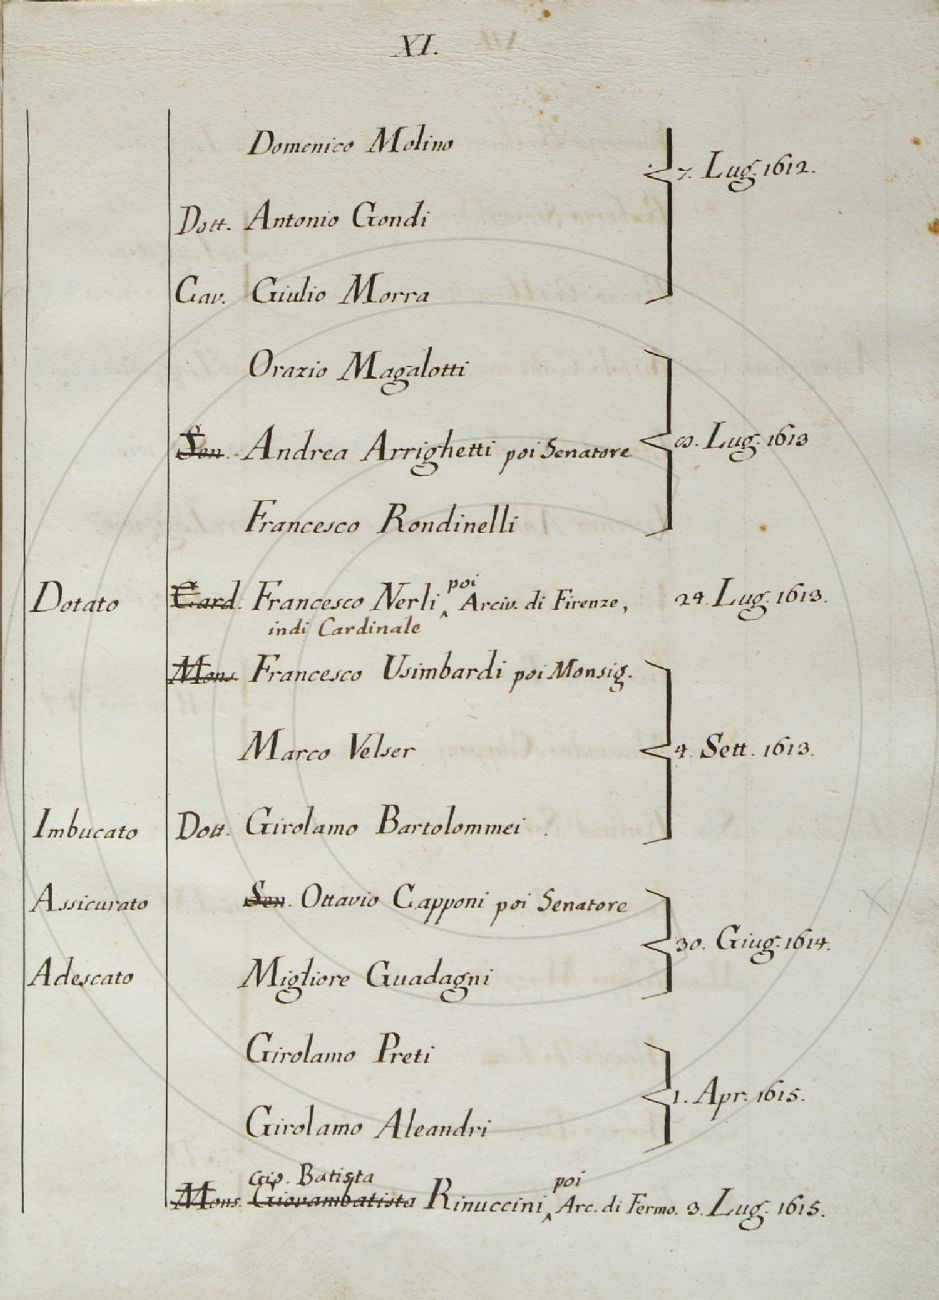 XI.
Domenico Molino
Dott. Antonio Gondi
7. Lug. 1612.
Cav. Giulio Morra
Orazio Magalotti
Sen. Andrea Arrighetti poi Senatore
Lug. 1613
Francesco Rondinelli
Dotato Card. Francesco Nerli poi Arciv. di Firenze, 24. Lug. 1613.
indi Cardinale
Mons. Francesco Usimbardi poi Monsig.
Marco Velser 4. Sett. 1613.
Imbucato Dott. Girolamo Bartolommei
Assicurato Sen. Ottavio Capponi poi Senatore
30. Giug. 1614.
Adescato Migliore Guadagni
Girolamo Preti
1. Apr. 1615.
Girolamo Aleandri
Gio. Batista poi
Mons. Giovambatista Rinuccini Arc. di Fermo. 3. Lug. 1615.